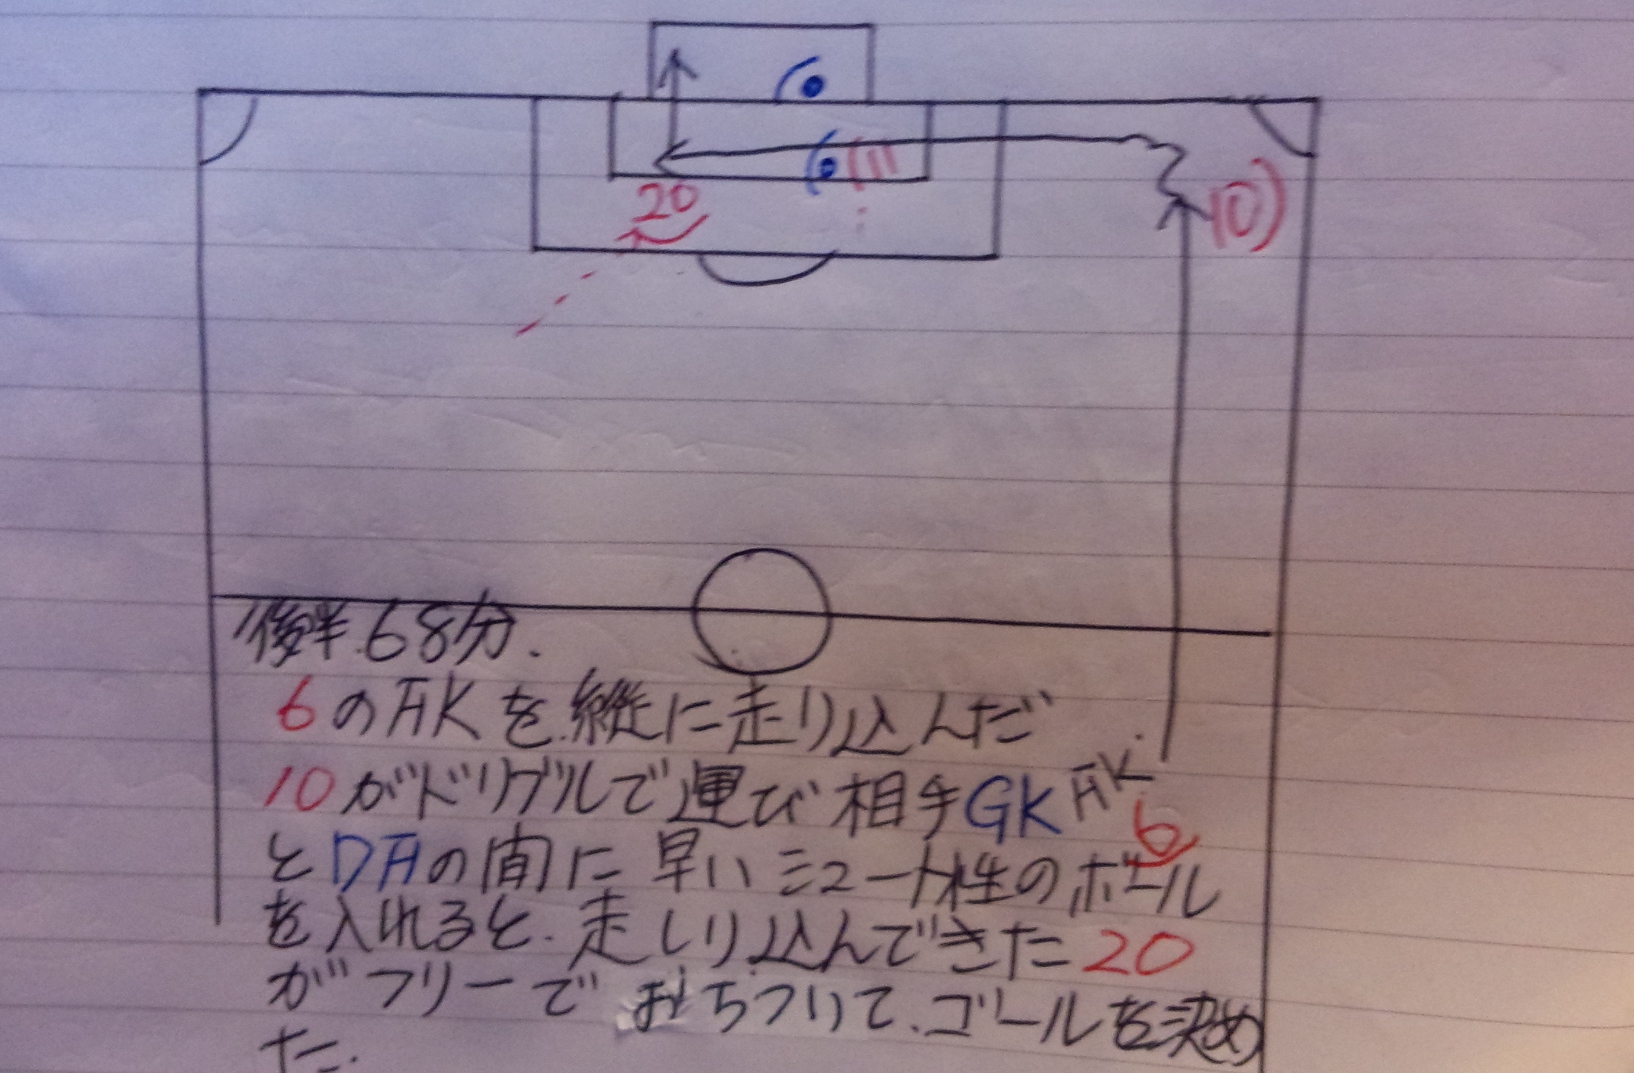 11
20
10
後半.68分.
6のFKを.縦に走り込んだ
10がドリブルで運び相手GK
FK
6
とDFの間に早いシュート性のボール
を入れると.走しり込んできた20
がフリーでおちついて.ゴールを決め
た.